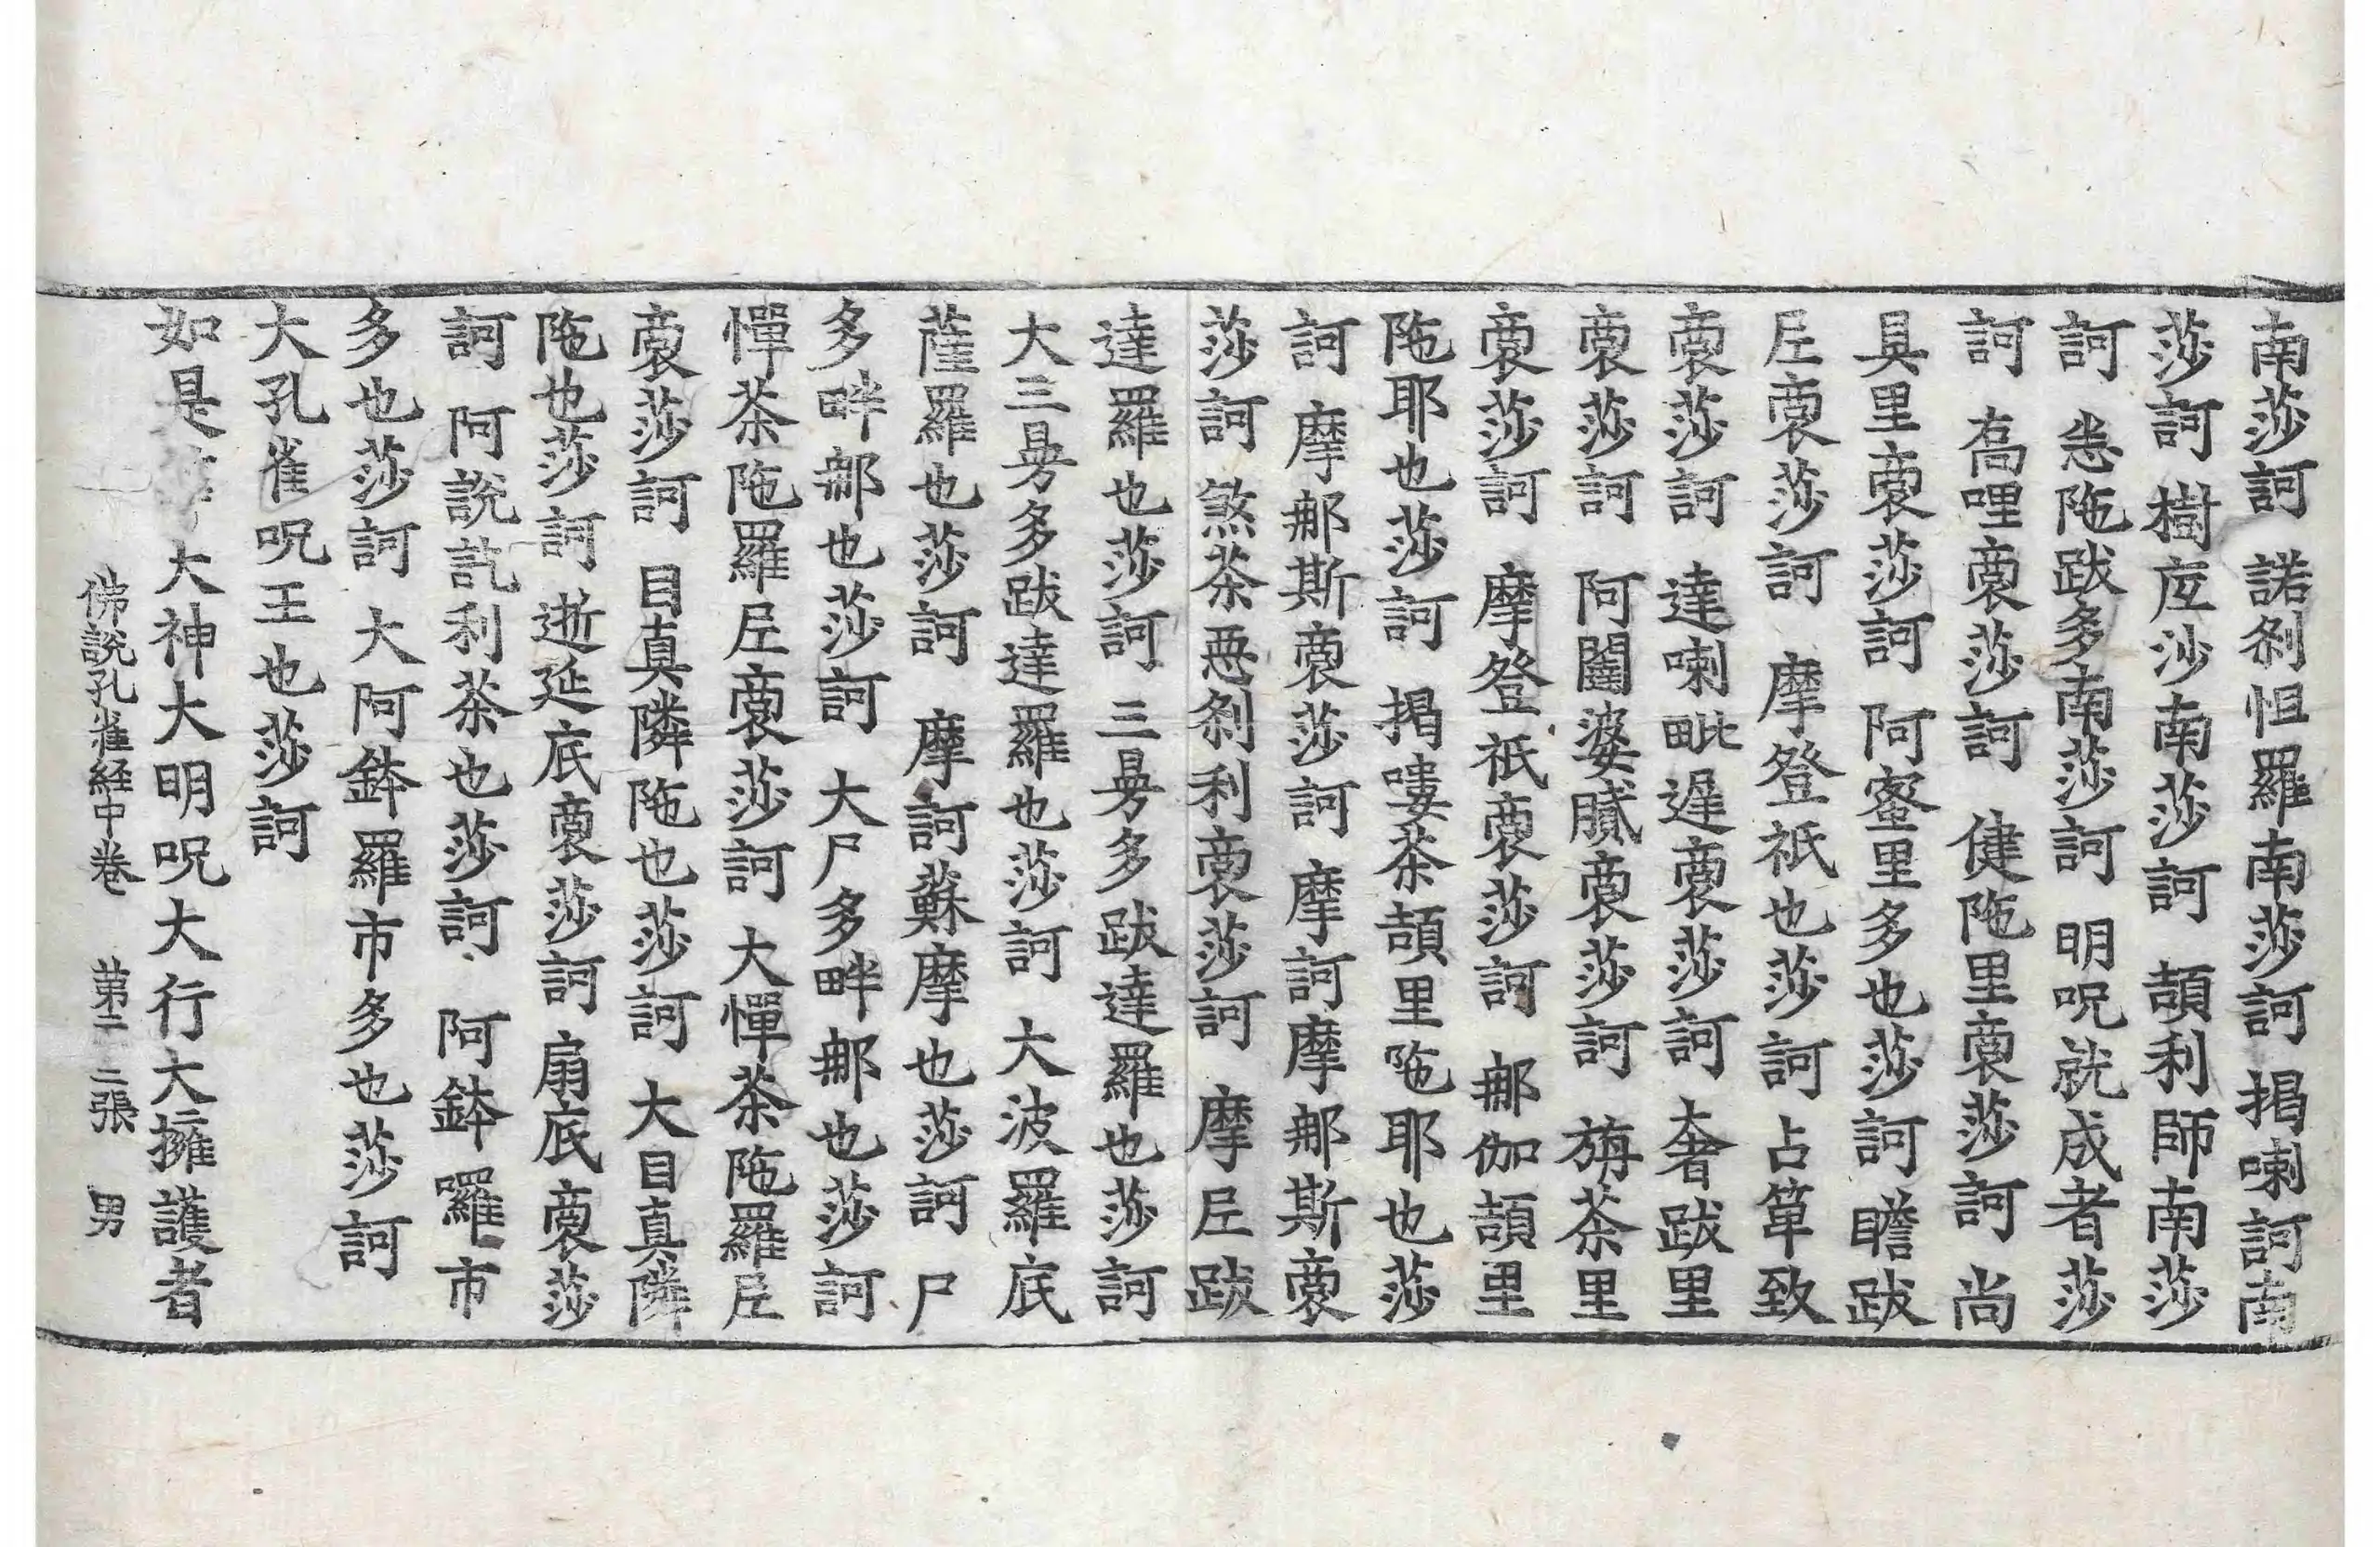 南莎訶 諾剎怛羅南莎訶 揭喇訶南
莎訶 樹㡳沙南莎訶 頡利師南莎
訶 悉陁跋多南莎訶 明呪就成者莎
訶 高哩裔莎訶 健陁里裔莎訶 尚
具里裔莎訶 阿蜜里多也莎訶 瞻跋
𡰱裔莎訶 摩登祇也莎訶 占箄致
裔莎訶 達喇毗遲裔莎訶 奢跋里
裔莎訶 阿闥婆膩裔莎訶 旃荼里
裔莎訶 摩登祇裔莎訶 那伽頡里
陁耶也莎訶 揭嘍荼頡里陁耶也莎
訶 摩那斯裔莎訶 摩訶摩那斯裔
莎訶 煞荼惡剎利裔莎訶 摩𡰱跋
達羅也莎訶 三曼多跋達羅也莎訶
大三曼多跋達羅也莎訶 大波羅底
薩羅也莎訶 摩訶蘇摩也莎訶 尸
多畔那也莎訶 大尸多畔那也莎訶
憚荼陁羅𡰱裔莎訶 大憚荼陁羅𡰱
裔莎訶 目真隣陁也莎訶 大目真隣
陁也莎訶 逝延底裔莎訶 扇底裔莎
訶 阿說訖利荼也莎訶 阿鉢囉市
多也莎訶 大阿鉢羅市多也莎訶
大孔雀呪王也莎訶
如是 大神大明呪大行大擁護者
佛說孔雀経中卷 苐二 二張 男